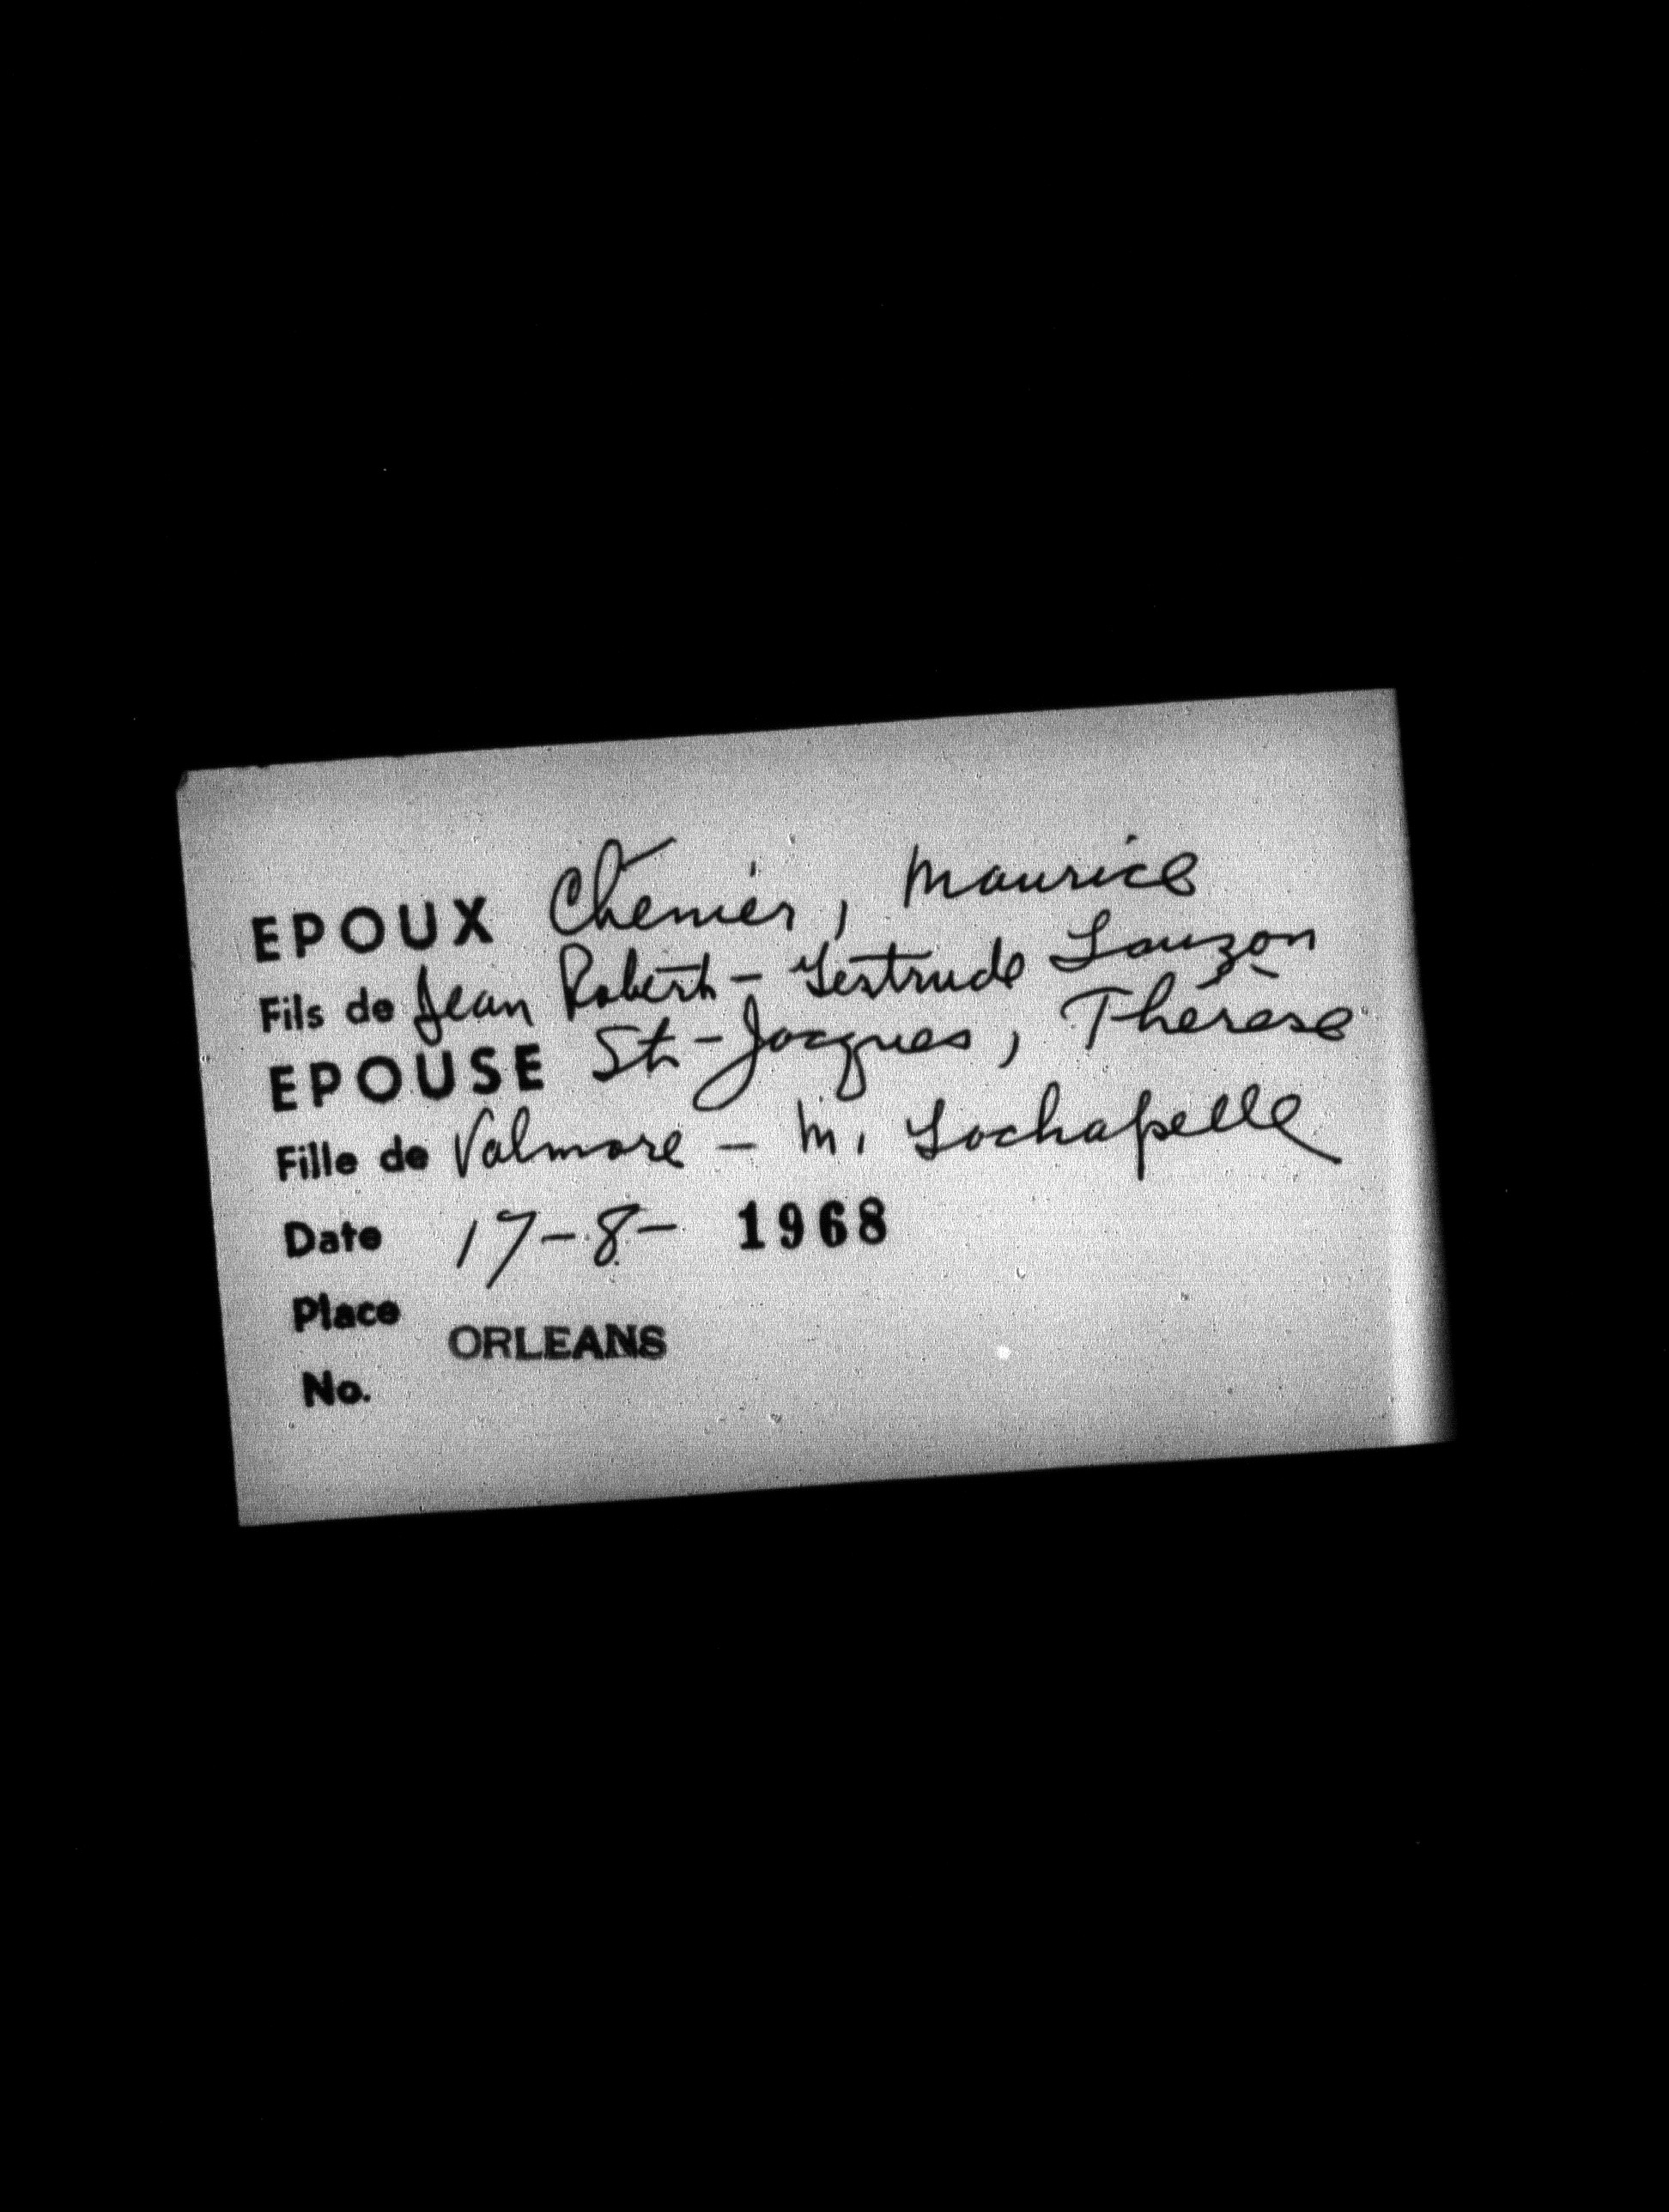 EPOUX Chenier, Maurice
Fils de Jean Robert - Gertrude Lauzon
EPOUSE St-Jacques, Thérèse
Fille de Valmore - M. Lachapelle
Date 17-8- 1968
Place ORLEANS
No.